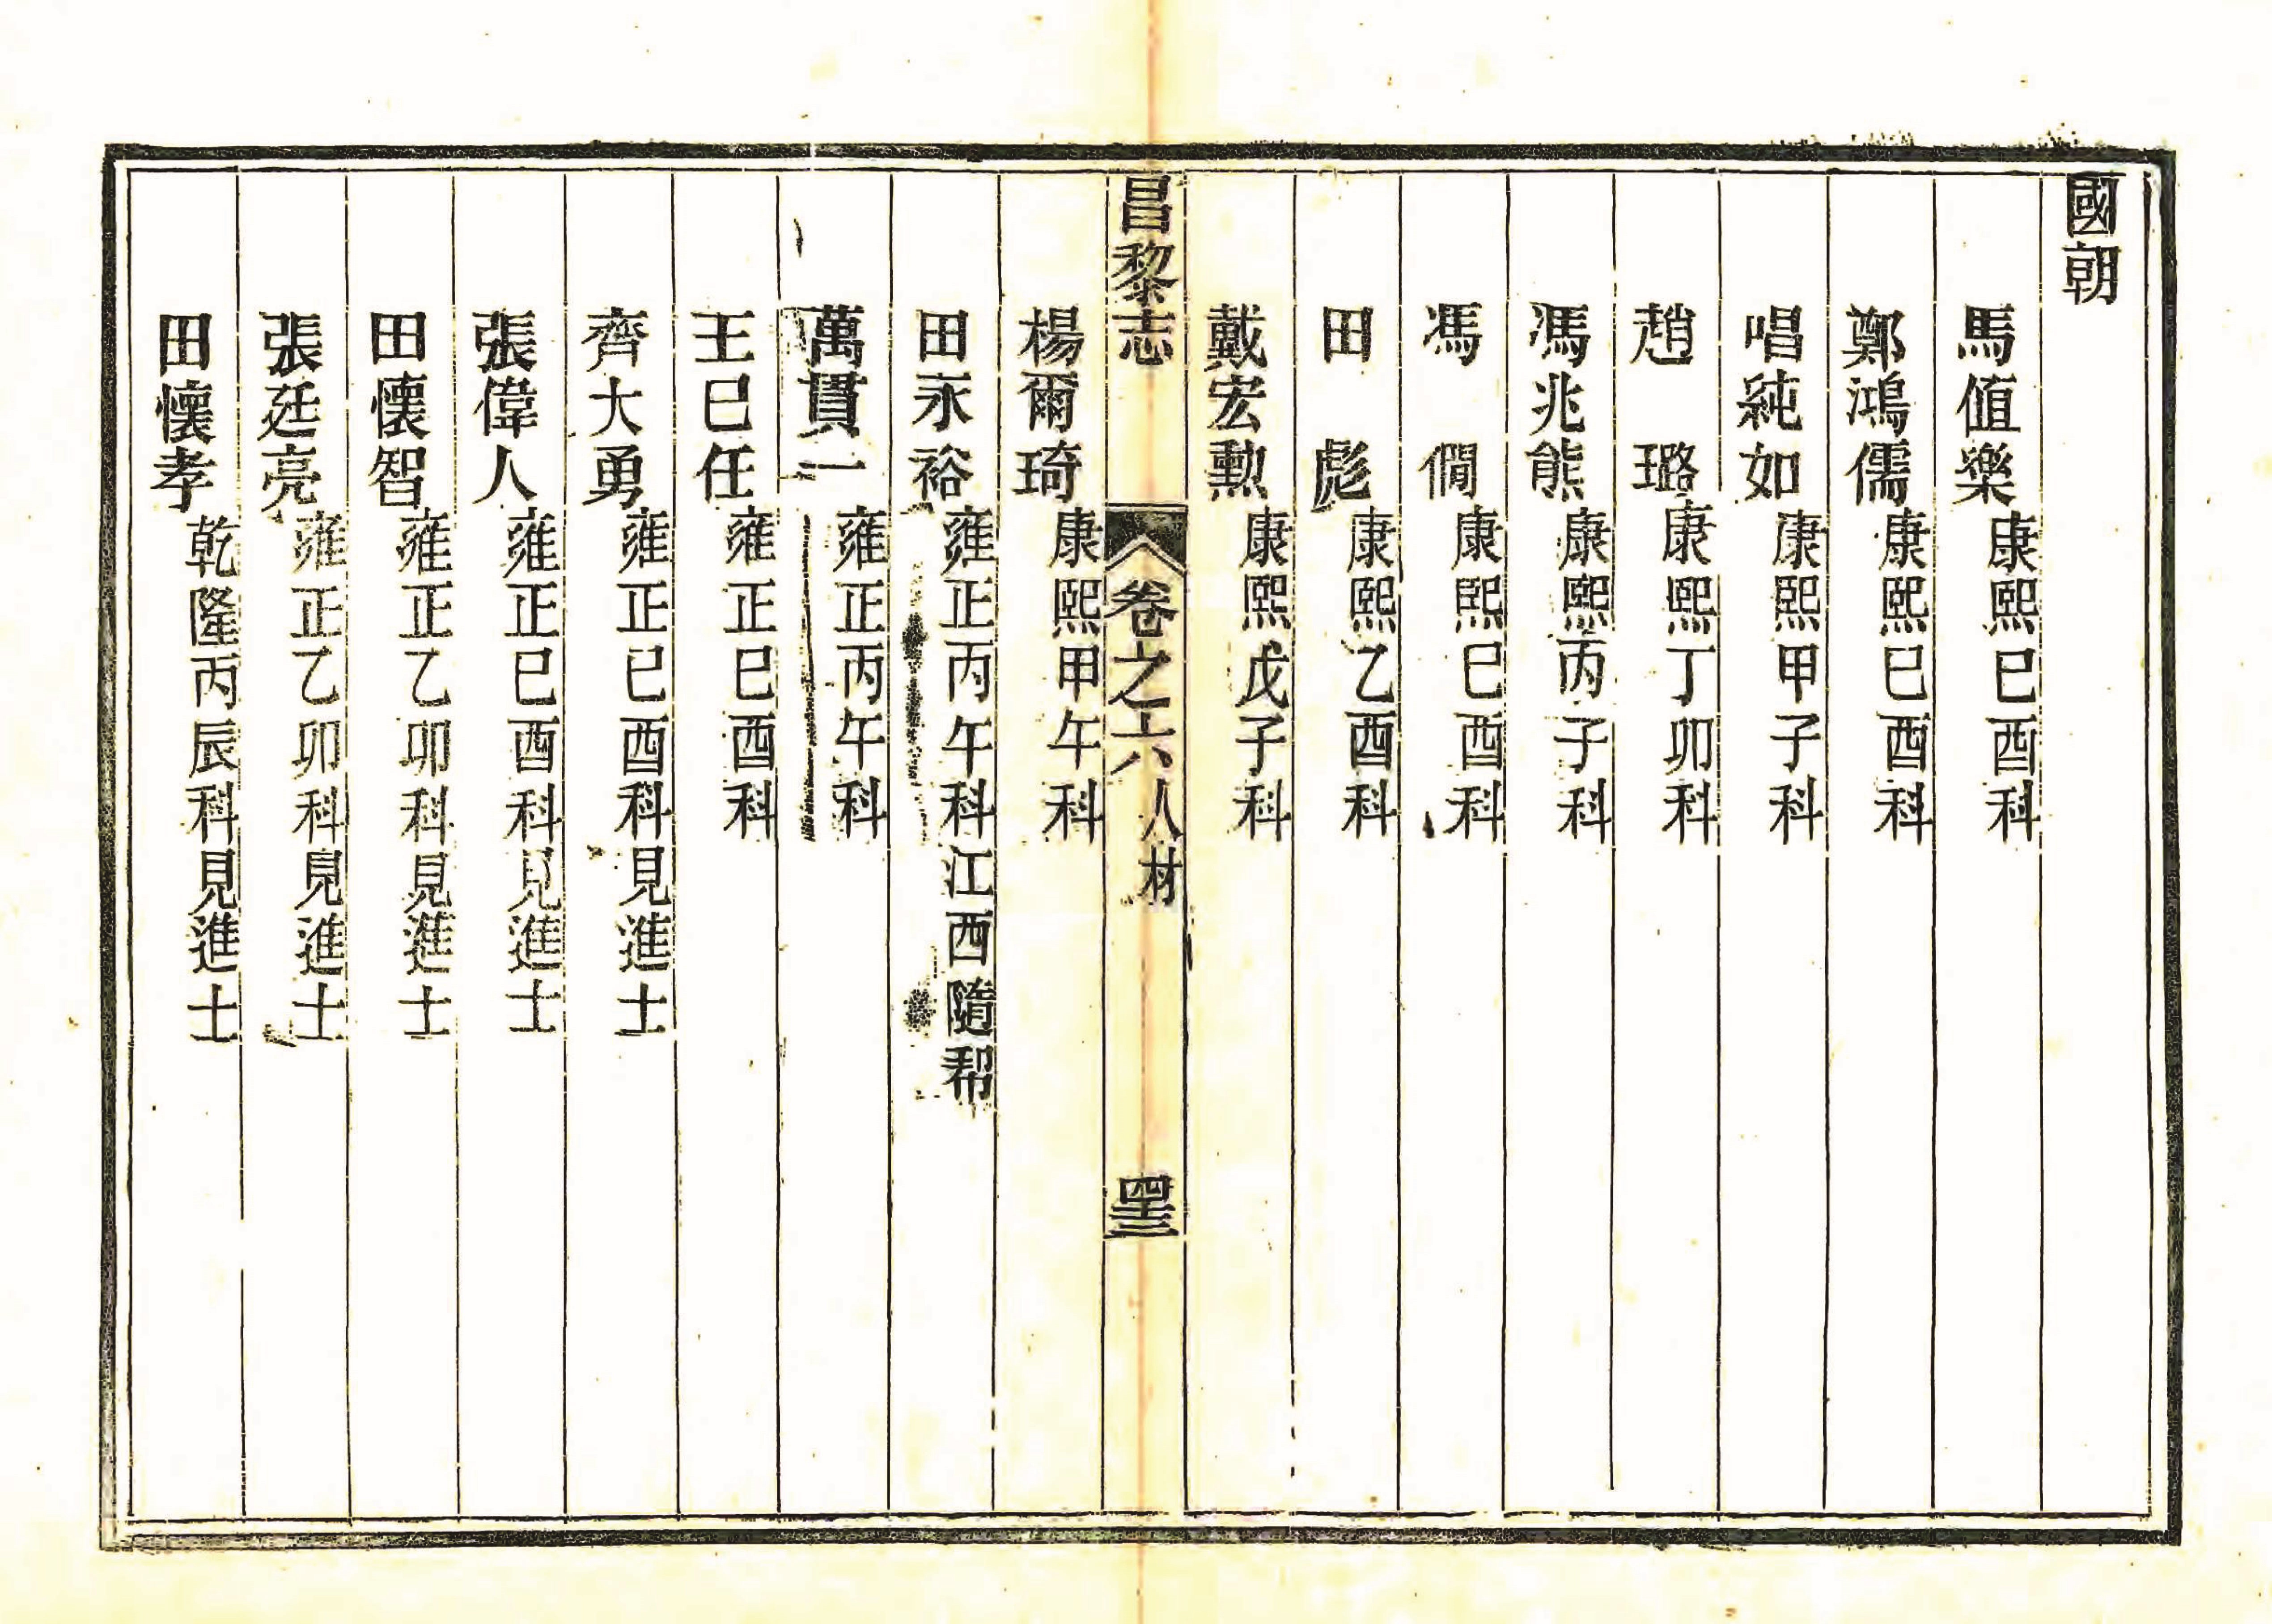 國朝
馬值樂康熙已酉科
鄭鴻儒康熙已酉科
唱純如康熙甲子科
趙璐康熙丁卯科
馮兆熊康熙丙子科
馮僩康熙已酉科
田彪康熙乙酉科
戴宏勲康熙戊子科
昌黎志 卷之六人材 四十三
楊爾琦康熙甲午科
田永裕雍正丙午科江西隨幇
萬貫一雍正丙午科
王巳任雍正已酉科
齊大勇雍正已酉科見進士
張偉人雍正已酉科見進士
田懷智雍正乙卯科見進士
張廷亮雍正乙卯科見進士
田懷孝乾隆丙辰科見進士